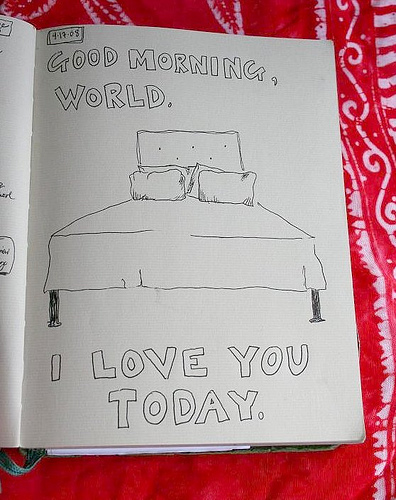 4.17.08
GOOD MORNING,
WORLD.
I LOVE YOU
TODAY.